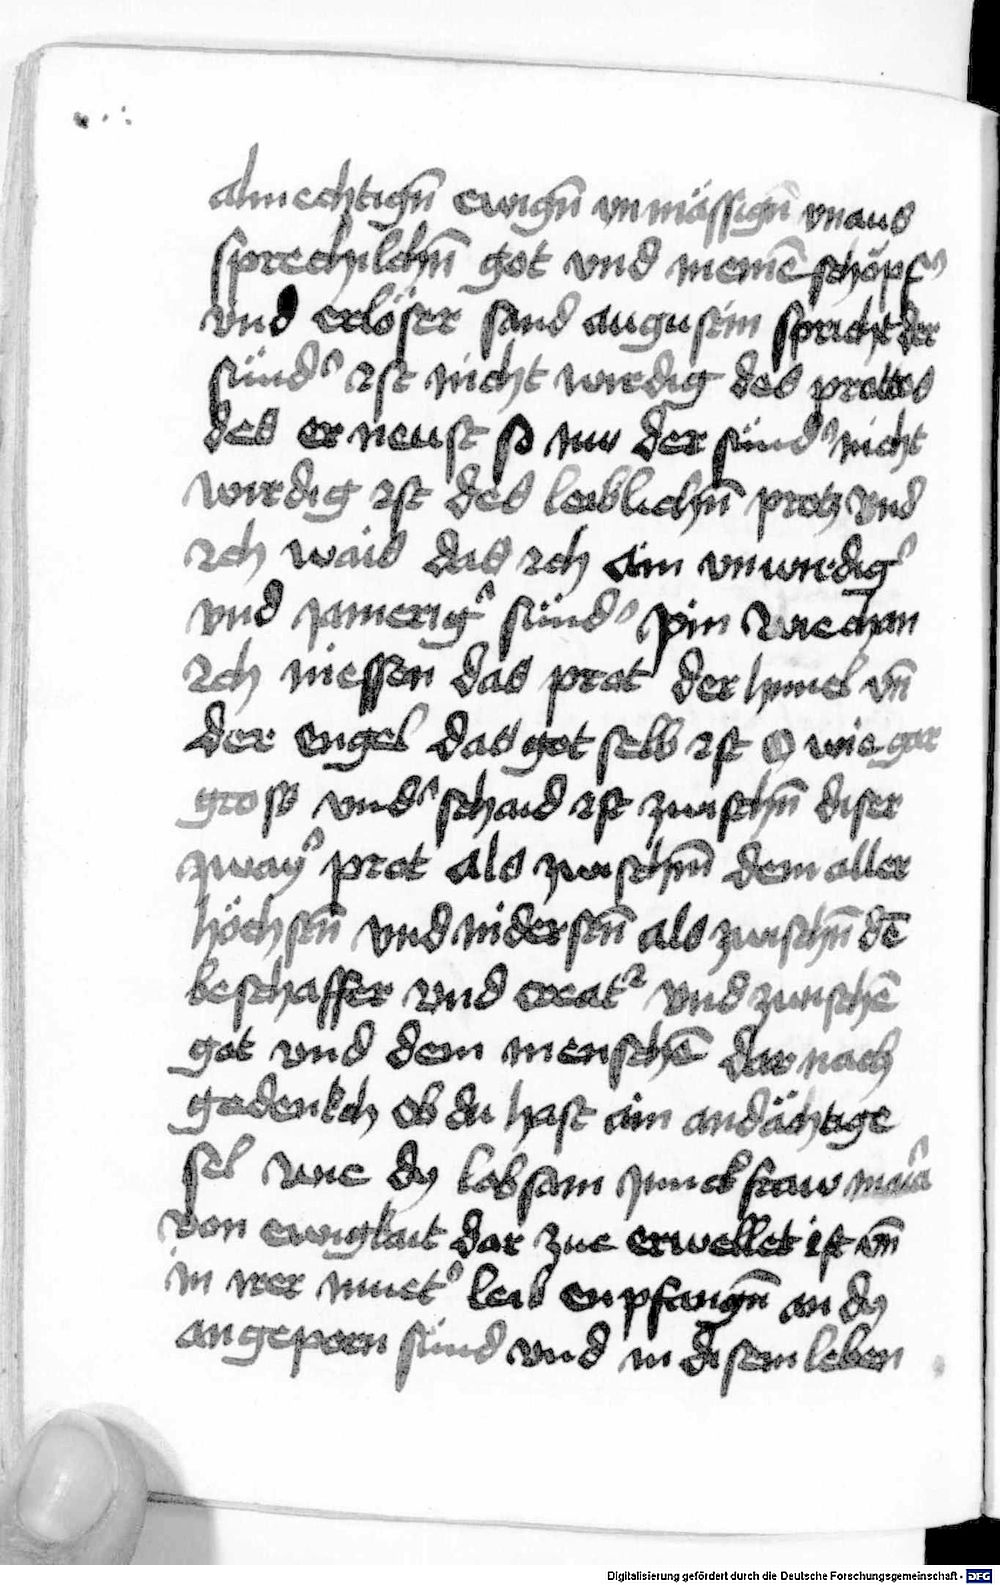 almechtign̄ ewign̄ vnmässign̄ vnaus
sprechnlichn̄ got vnd meinē schöpf᾽
vnd erlöser sand augustin spricht der
sünd᾽ ist nicht wirdig des prottes
des er neust so nw der sünd᾽ nicht
wirdig ist des leiblichn̄ protz vnd
ich wais das ich ain vnwirdig᾽
vnd jamerig᾽ sünd᾽ pin wie chan
ich niessen das prot der himel vn̄
der engel das got selb ist O wie gar
gross vnd᾽schaid ist zwischn̄ diser
zway᾽ prot als zwischn̄ dem aller
höchstn̄ vnd niderstn̄ als zwischn̄ dē
beschaffer vnd creat᾽ vnd zwischē
got vnd dem menschē dar nach
gedenkch ob du hast ain andächtige
sel wie dy lobsam junckfraw maria
von ewigkait dar zue erwellet ist vn̄
in irer muet᾽ leib enpfangn̄ an dy
angeporn sünd vnd in disem leben
Digitalisierung gefördert durch die Deutsche Forschungsgemeinschaft - DFG